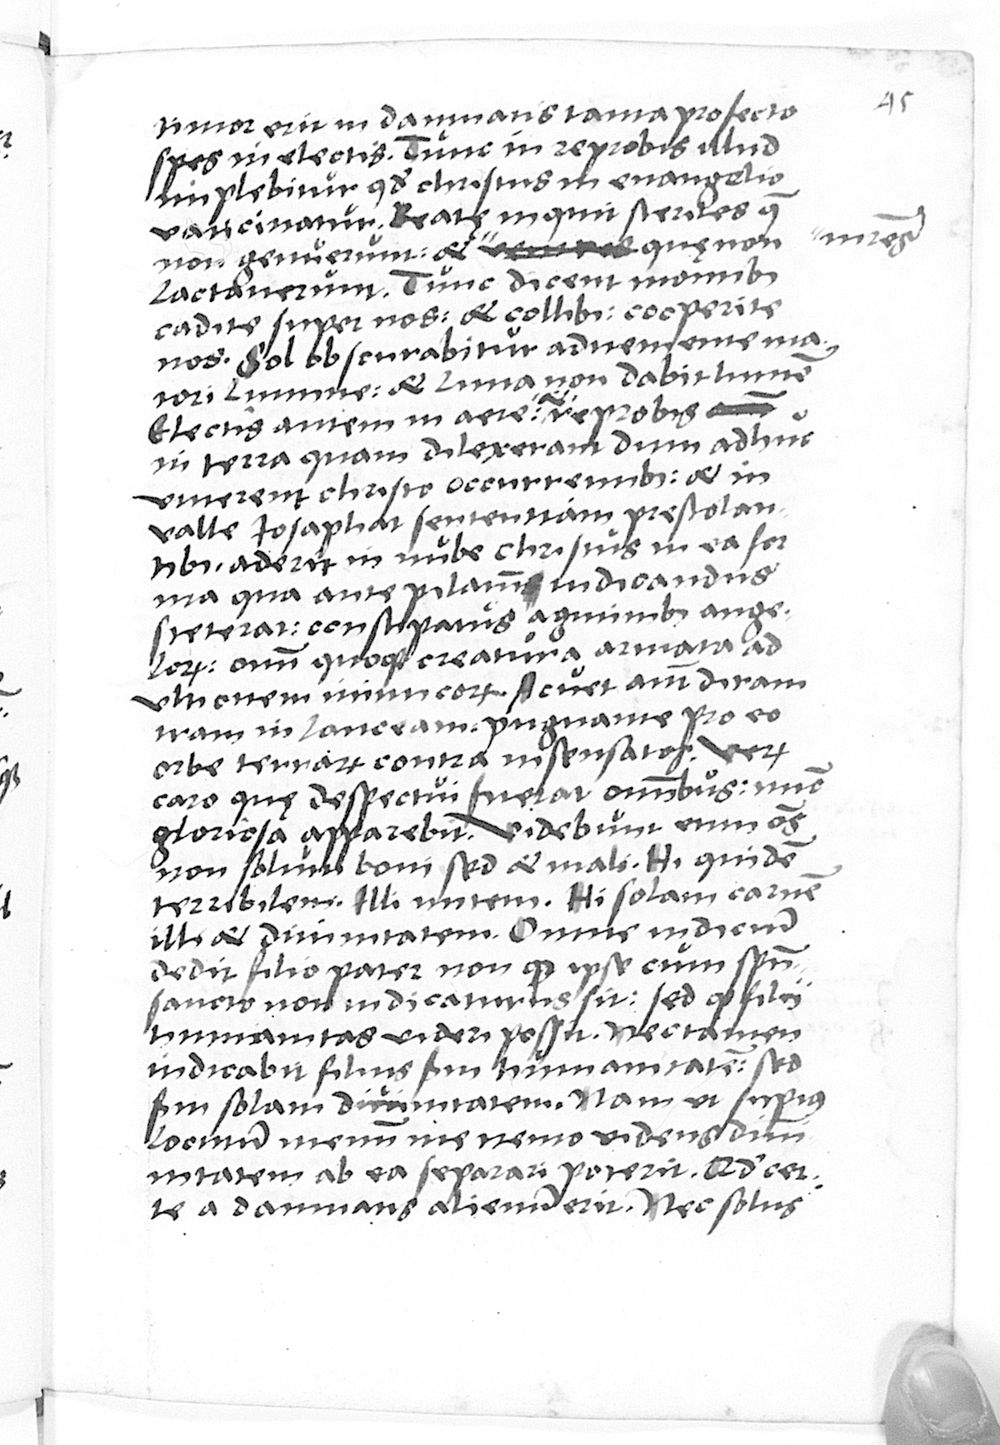 45
timor erit in damnatis tanta profecto
spes in electis. Tunc in reprobis illud
implebitur qd christus in euangelio
vaticinatur. Beatę inquit steriles q̄
non genuerunt: & quęnon
lactauerunt. Tunc dicent montibꝫ
cadite super nos: & collibꝫ: cooperite
nos. Sol obscurabitur adueniente ma
iori lumine: & luna non dabit lumē
Electis autem in aere: reprobis
in terra quam dilexerant dum adhuc
viuerent christo occurrentibꝫ: & in
valle Iosaphat sententiam prestolan
tibꝫ. aderit in nube christus in ea for
ma qua ante pilatū iudicandus
steterat: constipatus agminibꝫ ange.
lorꝫ: omī quoqꝫ creatura armata ad
vltionem inimicorꝫ. Acuet aūt diram
iram in lanceam. pugnante pro eo
orbe terrarꝫ contra insensatos. Verꝫ
caro quę despectui fuerat omībus: nūc
gloriosa apparebit. Videbunt enim oēs
non solum boni sed & mali. Hi quidē
terribilem. Illi mitem. Hi solam carnē
illi & diuinitatem. Omne iudiciū
dedit filio pater non qꝫ ipse cum spū
sancto non iudicaturus sit: sed qꝫ filij
humanitas videri possit. Nec tamen
iudicabit filius sm humanitatē: sed
sm solam diuinitatem. Nam vt supius
locutū memī me nemo videns diui
nitatem ab ea separari poterit. Qd cer
te a damnatis alienū erit. Nec solus